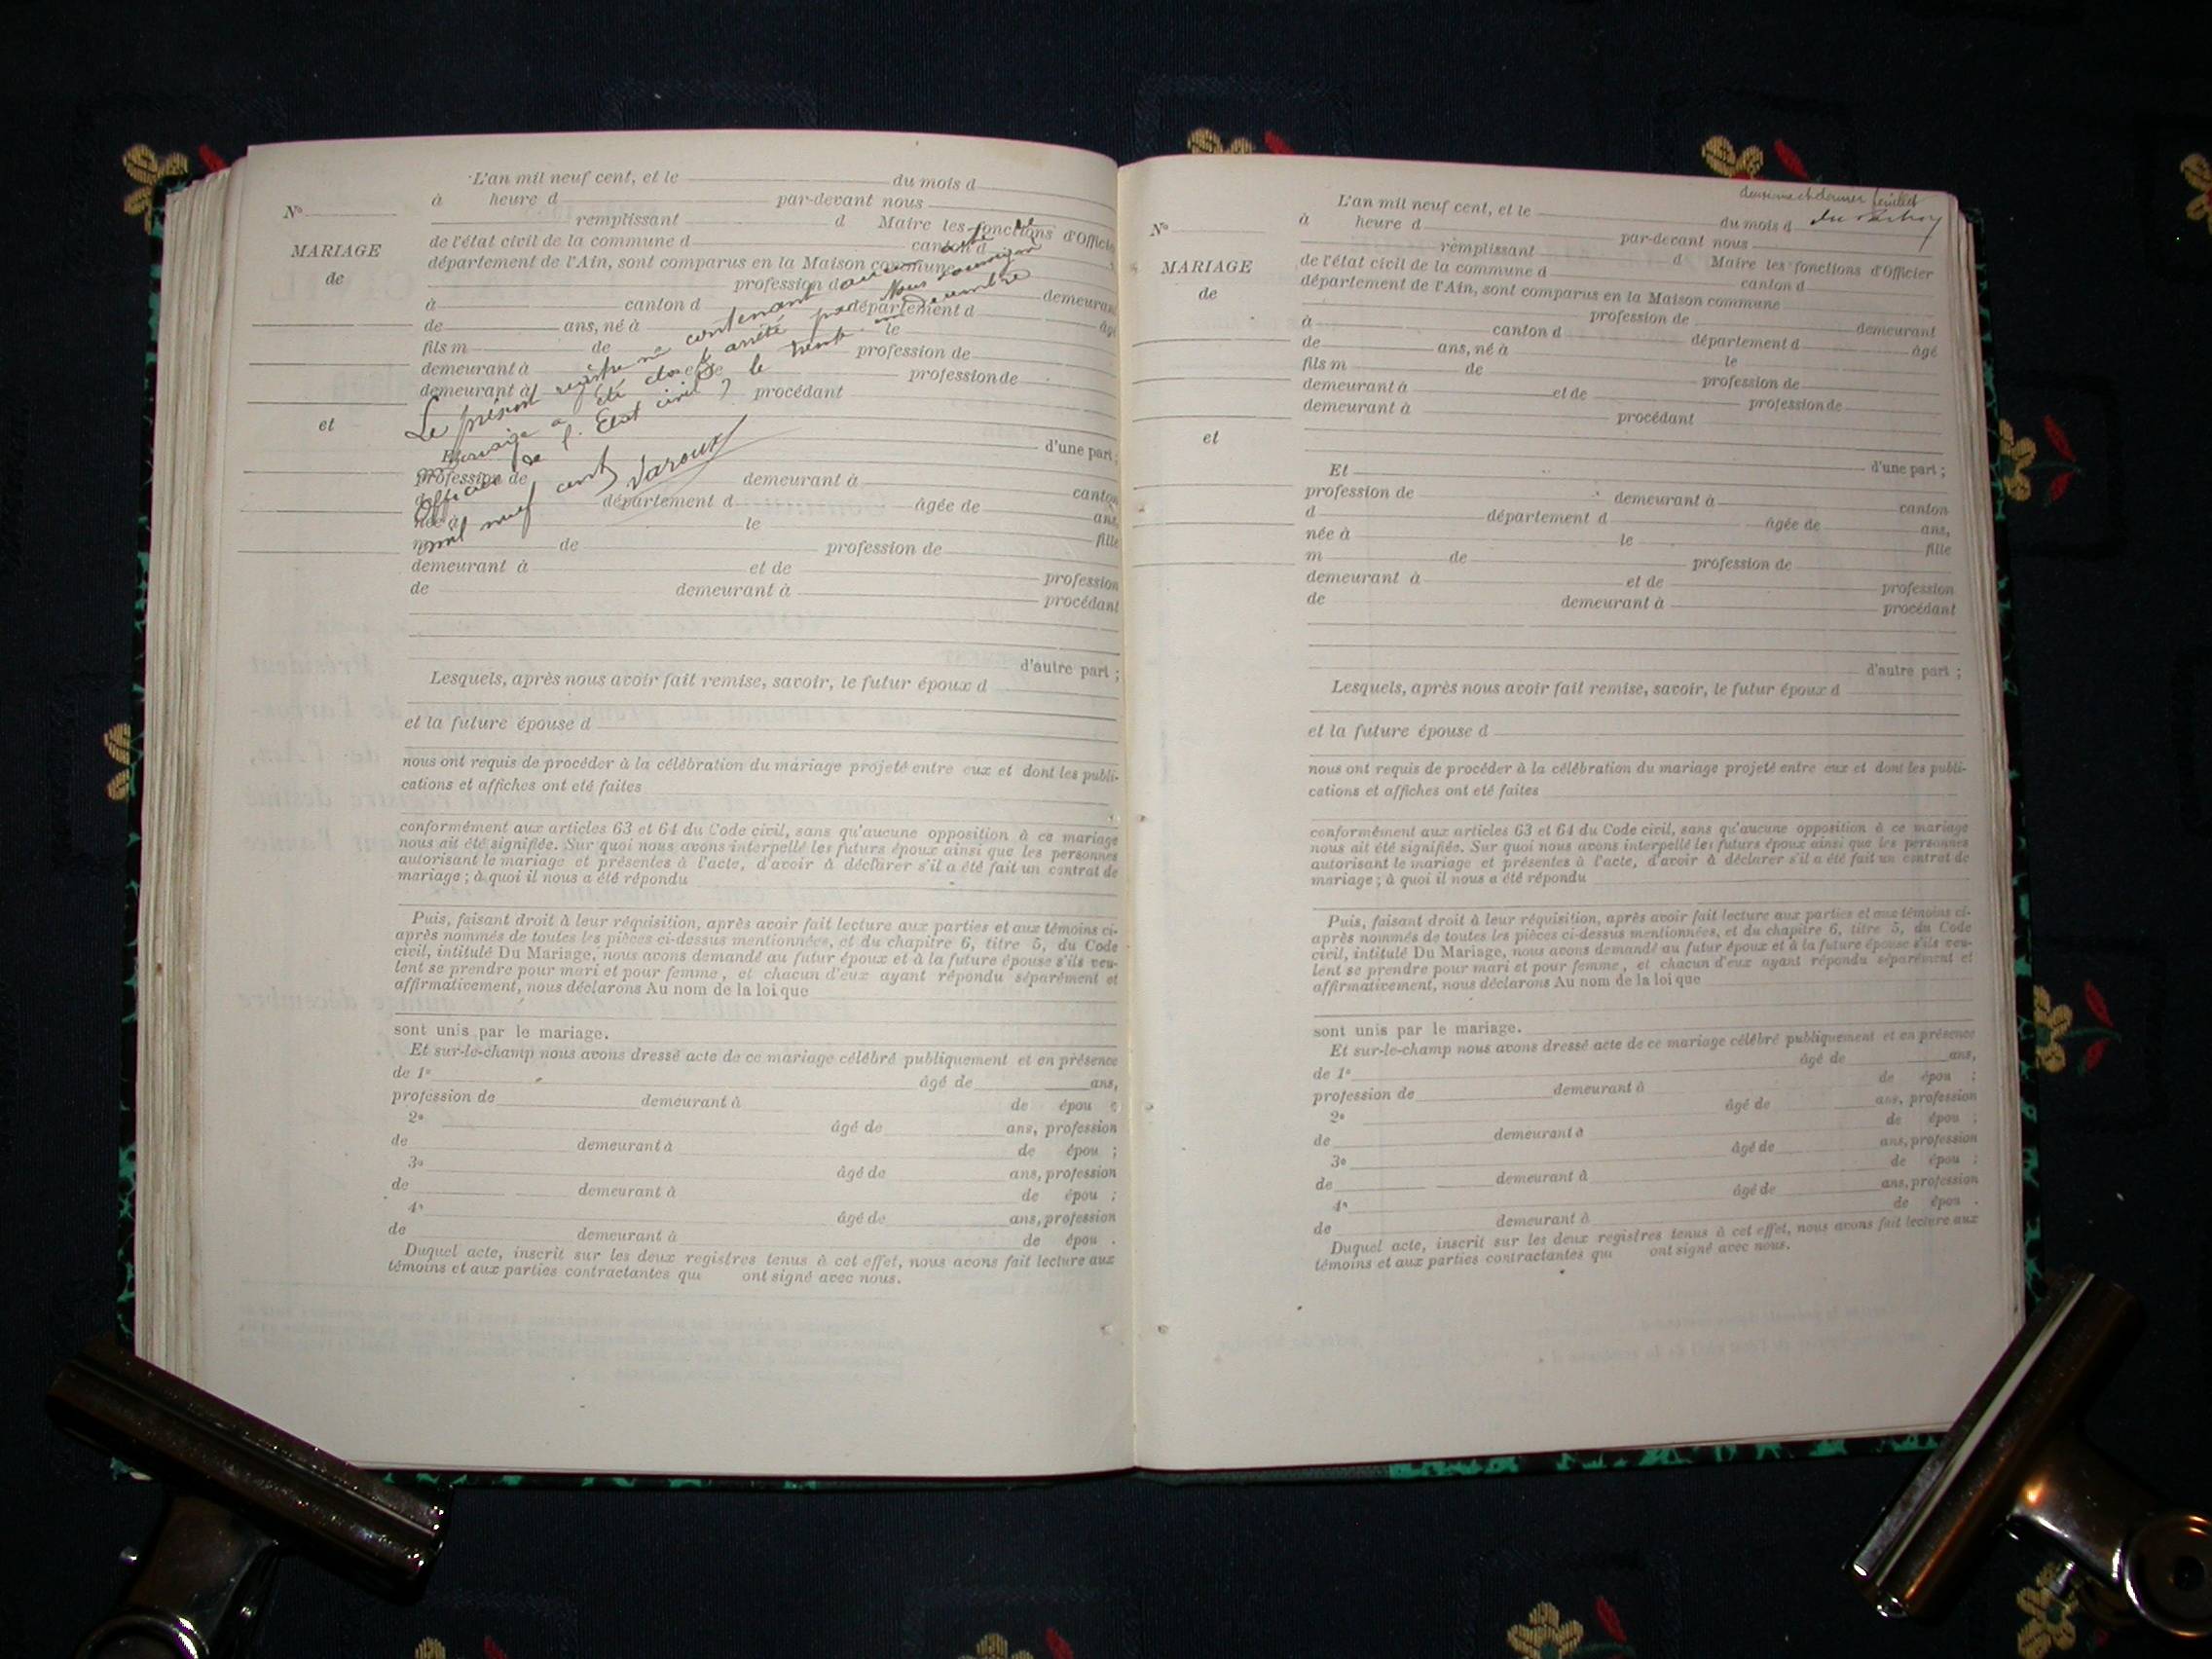 L'an mil neuf cent, et le du mois d
à heure d par-devant nous
remplissant d Maire les fonctions d'Officier
de l'état civil de la commune d canton d
département de l'Ain, sont comparus en la Maison commune
profession d demeurant
à canton d département d âgé
de ans, né à le
fils m de profession de
demeurant à et de profession de
demeurant à procédant
d'une part;
Et
profession de demeurant à canton
d département d âgée de ans,
née à le fille
m de profession de
demeurant à et de profession
de demeurant à procédant
d'autre part;
Lesquels, après nous avoir fait remise, savoir, le futur époux d
et la future épouse d
nous ont requis de procéder à la célébration du mariage projeté entre eux et dont les publi-
cations et affiches ont eté faites
conformément aux articles 63 et 64 du Code civil, sans qu'aucune opposition à ce mariage
nous ait été signifiée. Sur quoi nous avons interpellé les futurs époux ainsi que les personnes
autorisant le mariage et présentes à l'acte, d'avoir à déclarer s'il a été fait un contrat de
mariage; à quoi il nous a été répondu
Puis, faisant droit à leur réquisition, après avoir fait lecture aux parties et aux témoins ci-
après nommés de toutes les pièces ci-dessus mentionnées, et du chapitre 6, titre 5, du Code
civil, intitulé Du Mariage, nous avons demandé au futur époux et à la future épouse s'ils veu-
lent se prendre pour mari et pour femme, et chacun d'eux ayant répondu séparément et
affirmativement, nous déclarons Au nom de la loi que
sont unis par le mariage.
Et sur-le-champ nous avons dressé acte de ce mariage célébré publiquement et en présence
de 1º âgé de ans,
profession de demeurant à de épou ;
2º âgé de ans, profession
de demeurant à de épou ;
3º âgé de ans, profession
de demeurant à de épou ;
4º âgé de ans, profession
de demeurant à de épou .
Duquel acte, inscrit sur les deux registres tenus à cet effet, nous avons fait lecture aux
témoins et aux parties contractantes qui ont signé avec nous.
Nº
MARIAGE
de
et
Le présent registre ne contenant aucun acte de
Mariage a été clos et arrêté par Nous soussigné
Officier de l'Etat civil le trente un décembre
mil neuf cent
Varoux
deuxième et dernier feuillet
L'an mil neuf cent, et le du mois d
à heure d par-devant nous
remplissant d Maire les fonctions d'Officier
de l'état civil de la commune d canton d
département de l'Ain, sont comparus en la Maison commune
profession de demeurant
à canton d département d âgé
de ans, né à le
fils m de profession de
demeurant à et de profession de
demeurant à procédant
d'une part;
Et
profession de demeurant à canton
d département d âgée de ans,
née à le fille
m de profession de
demeurant à et de profession
de demeurant à procédant
d'autre part;
Lesquels, après nous avoir fait remise, savoir, le futur époux d
et la future épouse d
nous ont requis de procéder à la célébration du mariage projeté entre eux et dont les publi-
cations et affiches ont eté faites
conformément aux articles 63 et 64 du Code civil, sans qu'aucune opposition à ce mariage
nous ait été signifiée. Sur quoi nous avons interpellé les futurs époux ainsi que les personnes
autorisant le mariage et présentes à l'acte, d'avoir à déclarer s'il a été fait un contrat de
mariage; à quoi il nous a été répondu
Puis, faisant droit à leur réquisition, après avoir fait lecture aux parties et aux témoins ci-
après nommés de toutes les pièces ci-dessus mentionnées, et du chapitre 6, titre 5, du Code
civil, intitulé Du Mariage, nous avons demandé au futur époux et à la future épouse s'ils veu-
lent se prendre pour mari et pour femme, et chacun d'eux ayant répondu séparément et
affirmativement, nous déclarons Au nom de la loi que
sont unis par le mariage.
Et sur-le-champ nous avons dressé acte de ce mariage célébré publiquement et en présence
de 1º âgé de ans,
profession de demeurant à de épou ;
2º âgé de ans, profession
de demeurant à de épou ;
3º âgé de ans, profession
de demeurant à de épou ;
4º âgé de ans, profession
de demeurant à de épou .
Duquel acte, inscrit sur les deux registres tenus à cet effet, nous avons fait lecture aux
témoins et aux parties contractantes qui ont signé avec nous.
Nº
MARIAGE
de
et